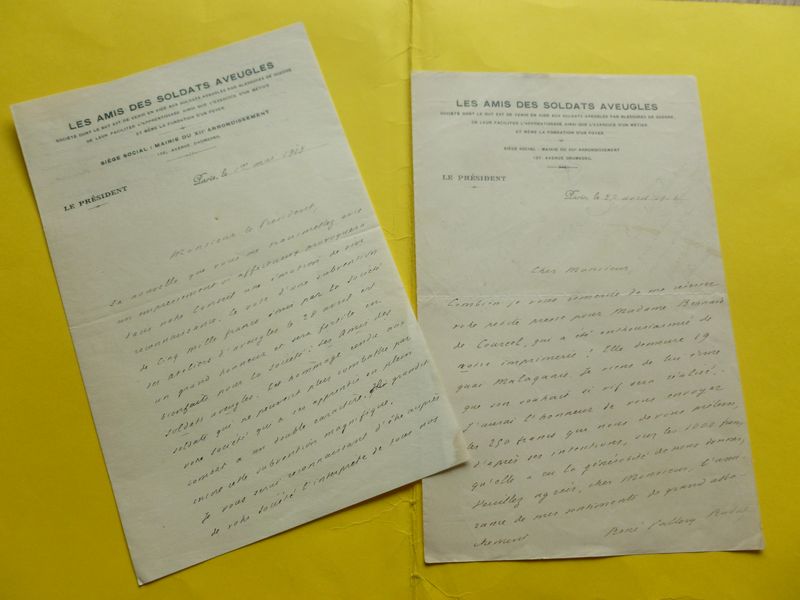 LES AMIS DES SOLDATS AVEUGLES
SOCIÉTÉ DONT LE BUT EST DE VENIR EN AIDE AUX SOLDATS AVEUGLES PAR BLESSURES DE GUERRE,
DE LEUR FACILITER L'APPRENTISSAGE, AINSI QUE L'EXERCICE D'UN MÉTIER
ET MÊME LA FONDATION D'UN FOYER
SIÈGE SOCIAL : MAIRIE DU XIIe ARRONDISSEMENT
130, AVENUE DAUMESNIL
LE PRÉSIDENT
Paris, le 1er mai
Monsieur le Président,
La nouvelle que vous me transmettez avec
un empressement si affectueux provoquera
dans notre Conseil une émotion de vive
reconnaissance. Le vote d'une subvention
de Cinq mille francs émis par la Société
des ateliers d'aveugles le 28 avril est
un grand honneur et sera fertile en
bienfaits pour la société : Les Amis des
soldats aveugles. Cet hommage rendu aux
soldats qui ne pouvant plus combattre par
votre société qui a ces apprentis en plein
combat a un double caractère. grandit
encore cette subvention magnifique.
Je vous serai reconnaissant d'être auprès
de votre Société l'interprète de tous nos
LES AMIS DES SOLDATS AVEUGLES
SOCIÉTÉ DONT LE BUT EST DE VENIR EN AIDE AUX SOLDATS AVEUGLES PAR BLESSURES DE GUERRE,
DE LEUR FACILITER L'APPRENTISSAGE, AINSI QUE L'EXERCICE D'UN MÉTIER
ET MÊME LA FONDATION D'UN FOYER
SIÈGE SOCIAL : MAIRIE DU XIIe ARRONDISSEMENT
130, AVENUE DAUMESNIL
LE PRÉSIDENT
Paris, le 27 avril
Cher Monsieur,
Combien je vous remercie de me réserver
votre petite presse pour Madame Bernard
de Courcel, qui a été enthousiasmée de
votre imprimerie ! Elle demeure 19
quai Malaquais. Je viens de lui écrire
que son souhait si vif sera réalisé.
J'aurai l'honneur de vous envoyer
les 250 francs que nous devons prélever,
d'après ses intentions, sur les 1000 francs
qu'elle a eu la générosité de nous donner.
Veuillez agréer, cher Monsieur, l'assu-
rance de mes sentiments de grand atta-
chement
René Vallery Radot